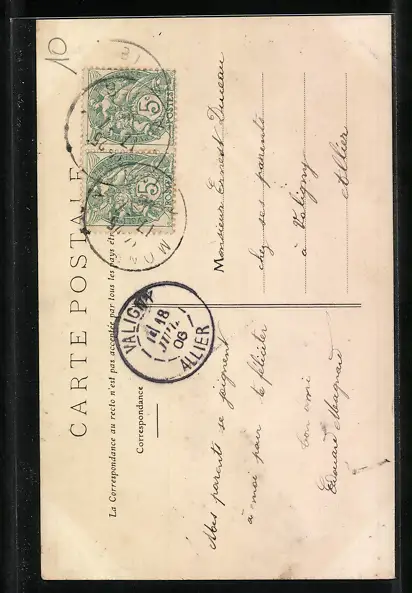 10
CARTE POSTALE
La Correspondance au recto n'est pas acceptée par tous les pays
Correspondance
5c
POSTES
5c
VALIGNY
18
JUIL
06
ALLIER
Mes parents se joignent
à moi pour te féliciter
ton ami
Edouard Magnard
Monsieur Ernest Duneau
chez ses parents
à Valigny
Allier